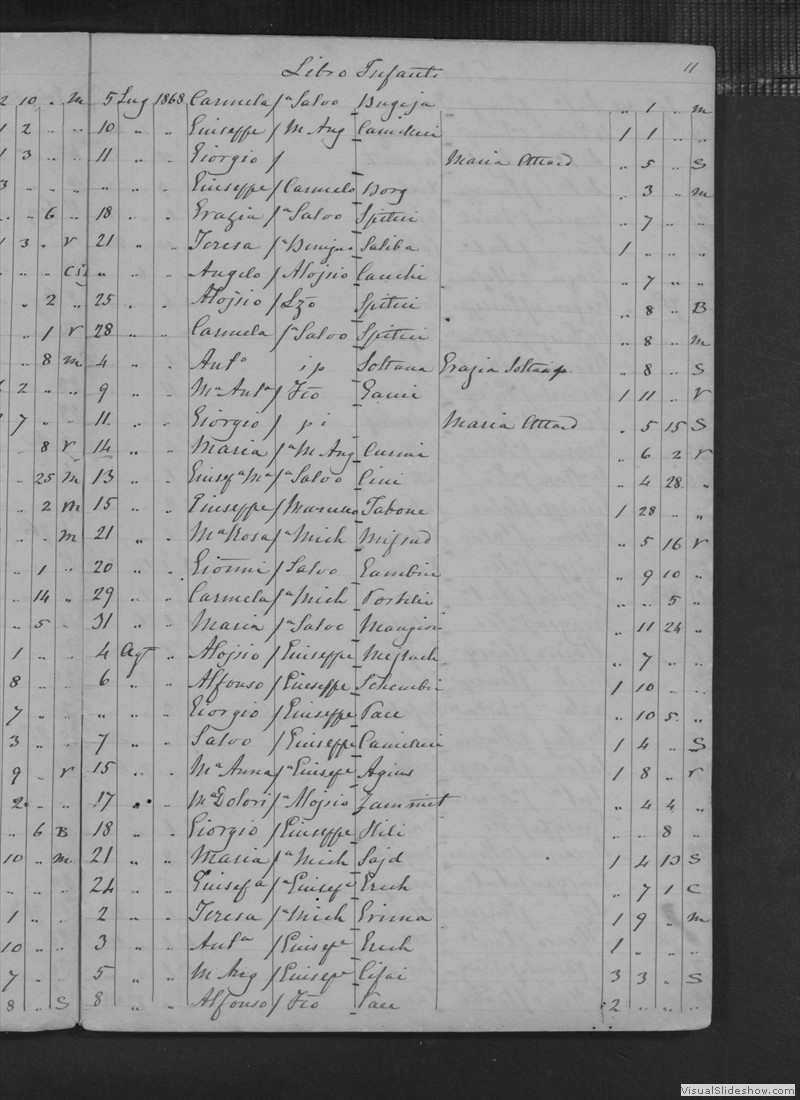 Libro Infanti 11
2 10 .. m 5 Lug 1868 Carmela fa Salvo Bugeja .. 1 .. m
1 2 .. .. 10 .. .. Giuseppe f M Ang Camilleri 1 1 .. ..
1 3 .. .. 11 .. .. Giorgio f Maria Attard .. 5 .. S
3 .. .. .. .. .. .. Giuseppe f Carmelo Borg .. 3 .. m
.. .. 6 .. 18 .. .. Grazia fa Salvo Spiteri .. 7 .. ..
1 3 .. V 21 .. .. Teresa fa Benigno Saliba 1 .. .. ..
.. .. .. .. .. .. Angelo f Aloisio Cauchi .. 7 .. ..
.. 2 .. 25 .. .. Aloisio f Lzo Spiteri .. 8 .. B
.. 1 V 28 .. .. Carmela fa Salvo Spiteri .. 8 .. m
.. 8 m 4 .. .. Anto ip Soltana Grazia .. 8 .. S
2 .. .. 9 .. .. Ma Anta f Fco Gauci 1 11 .. V
7 .. .. 11 .. .. Giorgio f pi Maria Attard .. 5 15 S
.. 8 V 14 .. .. Maria fa M Ang Curmi .. 6 2 V
.. 25 m 13 .. .. Giusefa Ma fa Salvo Cini .. 4 28 ..
.. 2 m 15 .. .. Giuseppe f Tabone 1 28 .. ..
.. m 21 .. .. Ma Rosa fa Mich Mifsud .. 5 16 V
.. 1 .. 20 .. .. Gionni f Salvo Gambin .. 9 10 ..
.. 14 .. 29 .. .. Carmela fa Mich Portelli .. .. 5 ..
.. 5 .. 31 .. .. Maria fa Salvo Mangion .. 11 24 ..
1 .. .. 4 Agt .. Aloisio f Giuseppe .. 7 .. ..
8 .. .. 6 .. .. Alfonso f Giuseppe Schembri 1 10 .. ..
7 .. .. .. .. .. Giorgio f Giuseppe Pace .. 10 5 ..
3 .. .. 7 .. .. Salvo f Giuseppe Camilleri 1 4 .. S
9 .. V 15 .. .. Ma Anna fa Giusepe Agius 1 8 .. V
2 .. .. 17 .. .. Ma Dolori fa Aloisio Zammit .. 4 4 ..
.. 6 B 18 .. .. Giorgio f Giuseppe Hili .. .. 8 ..
10 .. m 21 .. .. Maria fa Mich Sajd 1 4 13 S
.. .. .. 24 .. .. Giusefa fa Giusepe Grech .. 7 1 C
1 .. .. 2 .. .. Teresa fa Mich Grima 1 9 .. m
10 .. .. 3 .. .. Anta f Giusepe Grech 1 .. .. ..
7 .. .. 5 .. .. M Ang f Giusepe 3 3 .. S
8 .. S 8 .. .. Alfonso f Fco Pace 2 .. .. ..
VisualSlideshow.com